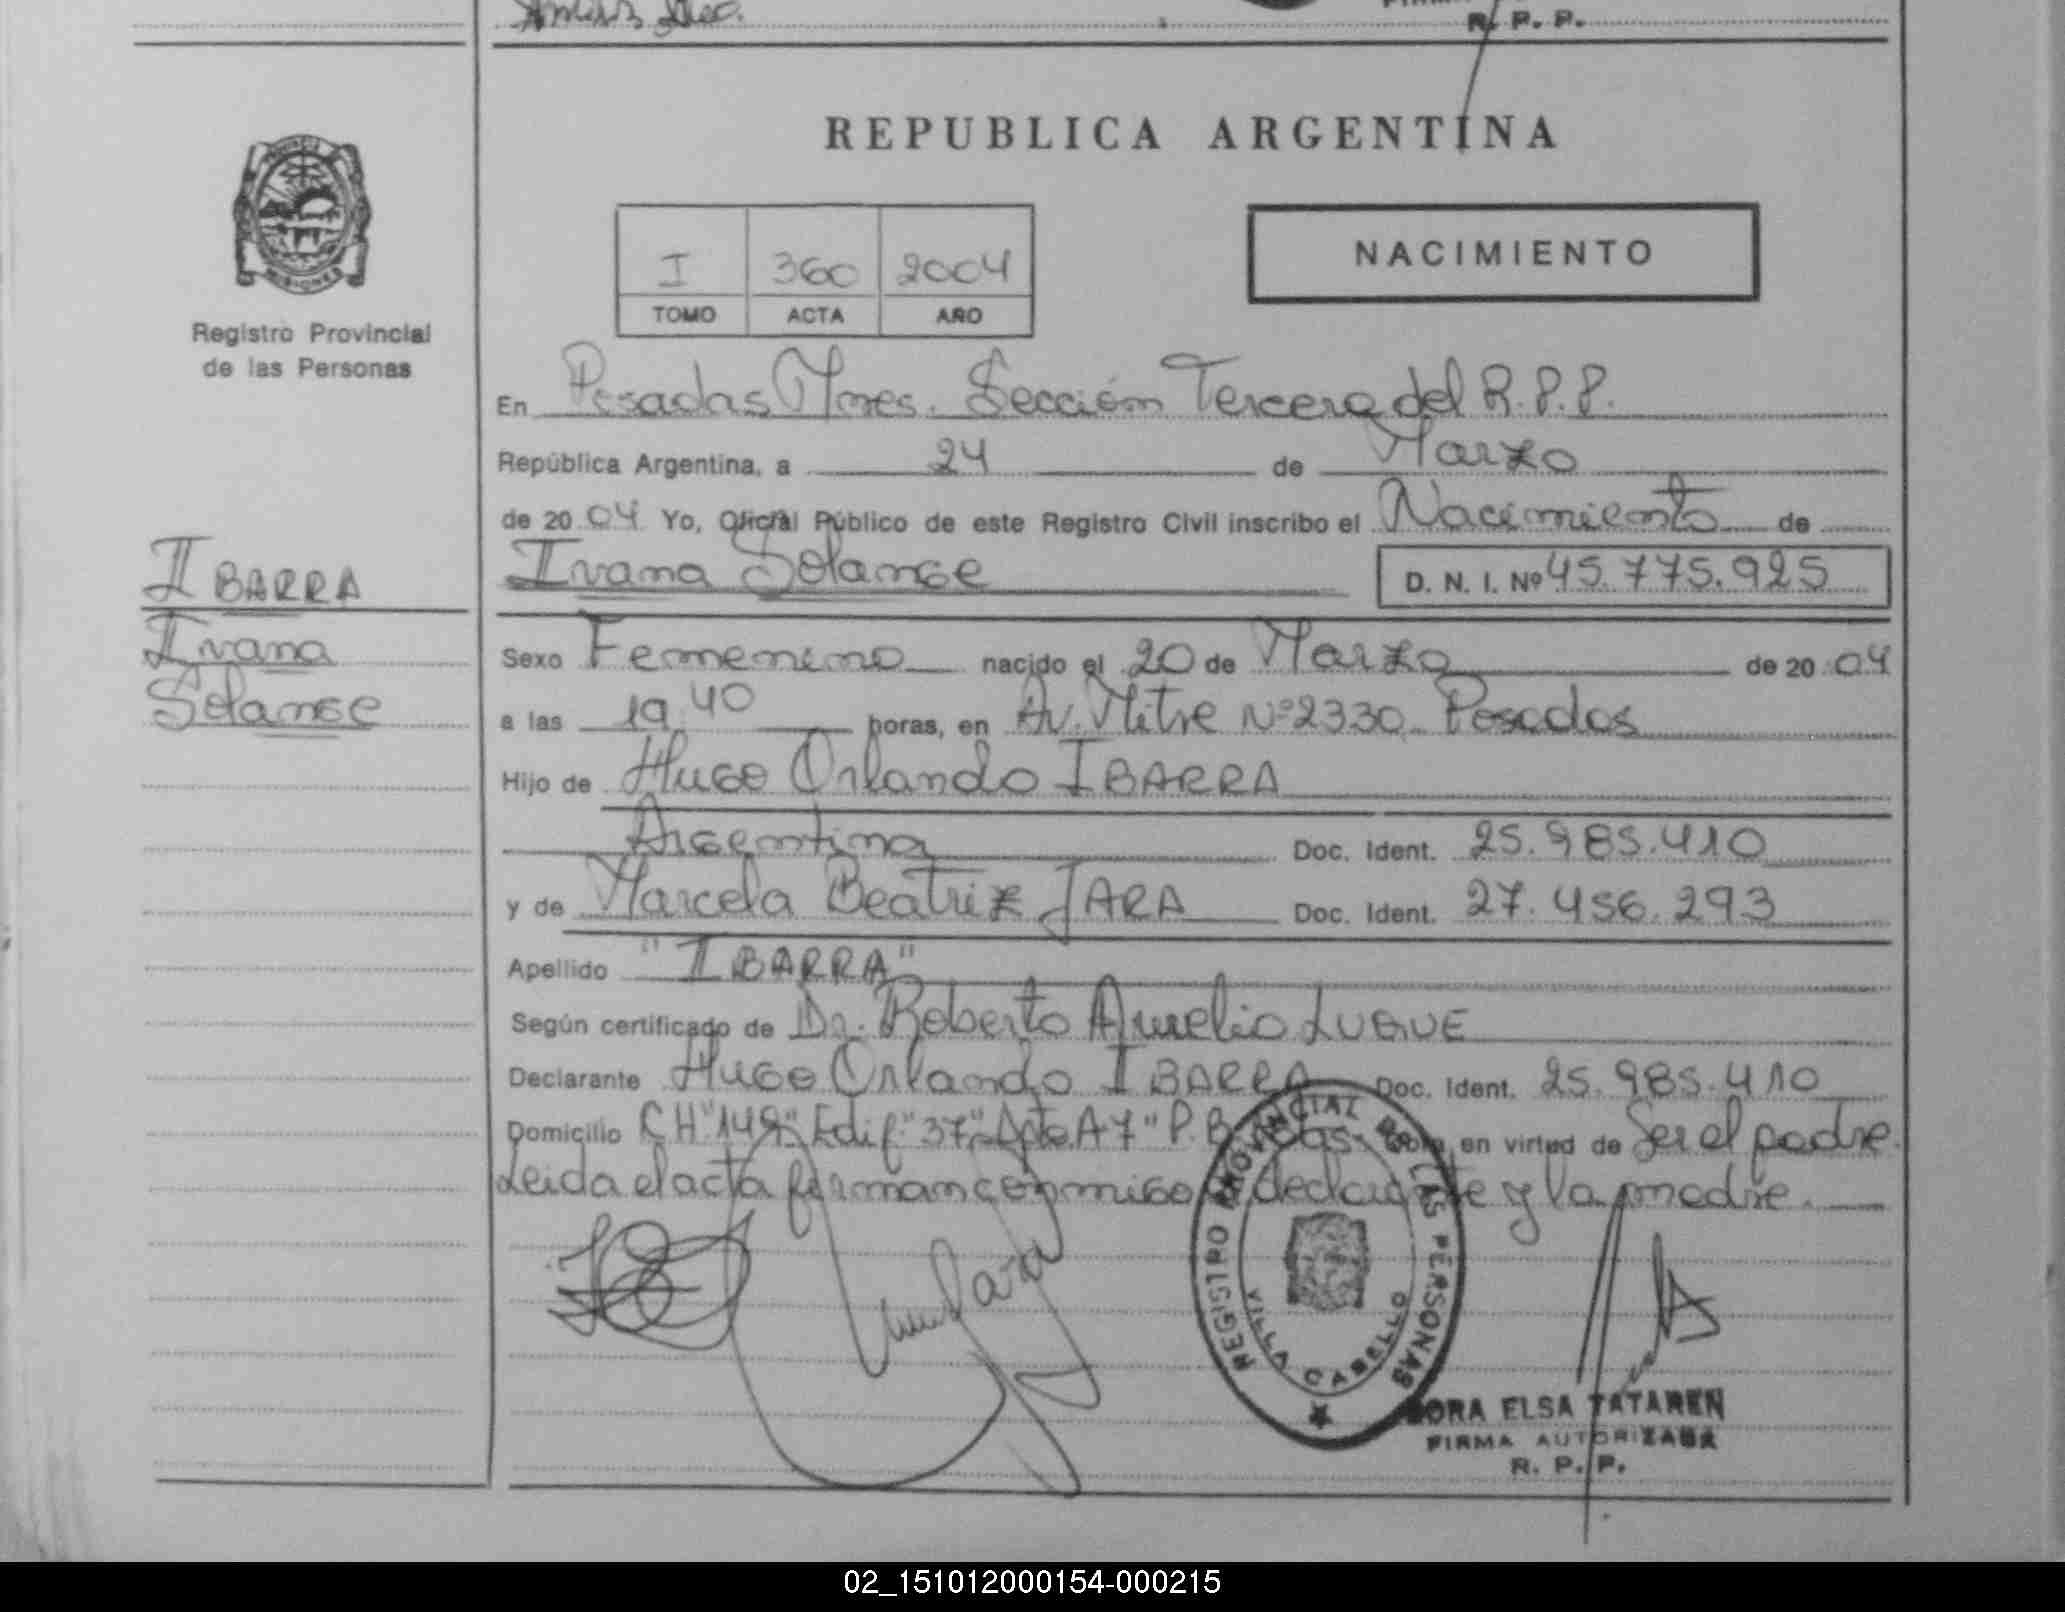 R. P. P.
REPUBLICA ARGENTINA
I 360 2004
TOMO ACTA AÑO
NACIMIENTO
MISIONES
Registro Provincial
de las Personas
IBARRA
Ivana
Solange
En Posadas Mnes. Sección Tercera del R.P.P.
República Argentina, a 24 de Marzo
de 2004 Yo, Oficial Público de este Registro Civil inscribo el Nacimiento de
Ivana Solange D. N. I. Nº 45.775.925
Sexo Femenino nacido el 20 de Marzo de 2004
a las 19,40 horas, en Av. Mitre Nº 2330 Posadas
Hijo de Hugo Orlando IBARRA
Argentina Doc. Ident. 25.985.410
y de Marcela Beatriz JARA Doc. Ident. 27.456.293
Apellido "IBARRA"
Según certificado de Dr. Roberto Aurelio LUQUE
Declarante Hugo Orlando IBARRA Doc. Ident. 25.985.410
Domicilio CH "149" Edif. "37" Dpto. A 7" P.B. en virtud de Ser el padre.
Leida el acta firman conmigo declarante y la madre.
Jara
REGISTRO PROVINCIAL DE LAS PERSONAS
VILLA CABELLO
ELSA TATAREN
FIRMA AUTORIZADA
R. P. P.
02_151012000154-000215